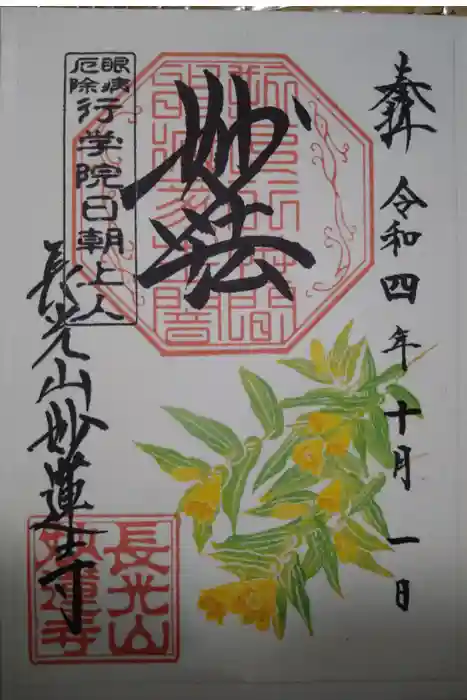 奉拝
令和四年十月一日
妙法
眼病
厄除
行学院日朝上人
長光山妙蓮寺
長光山
妙蓮寺